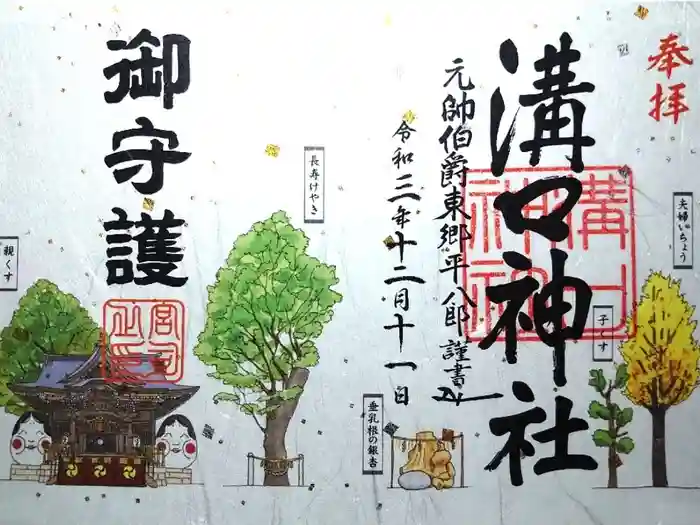 奉拝
夫婦いちょう
溝口神社
溝口神社
子くす
元帥伯爵東郷平八郎謹書
令和三年十二月十一日
垂乳根の銀杏
長寿けやき
御守護
宮司之印
親くす